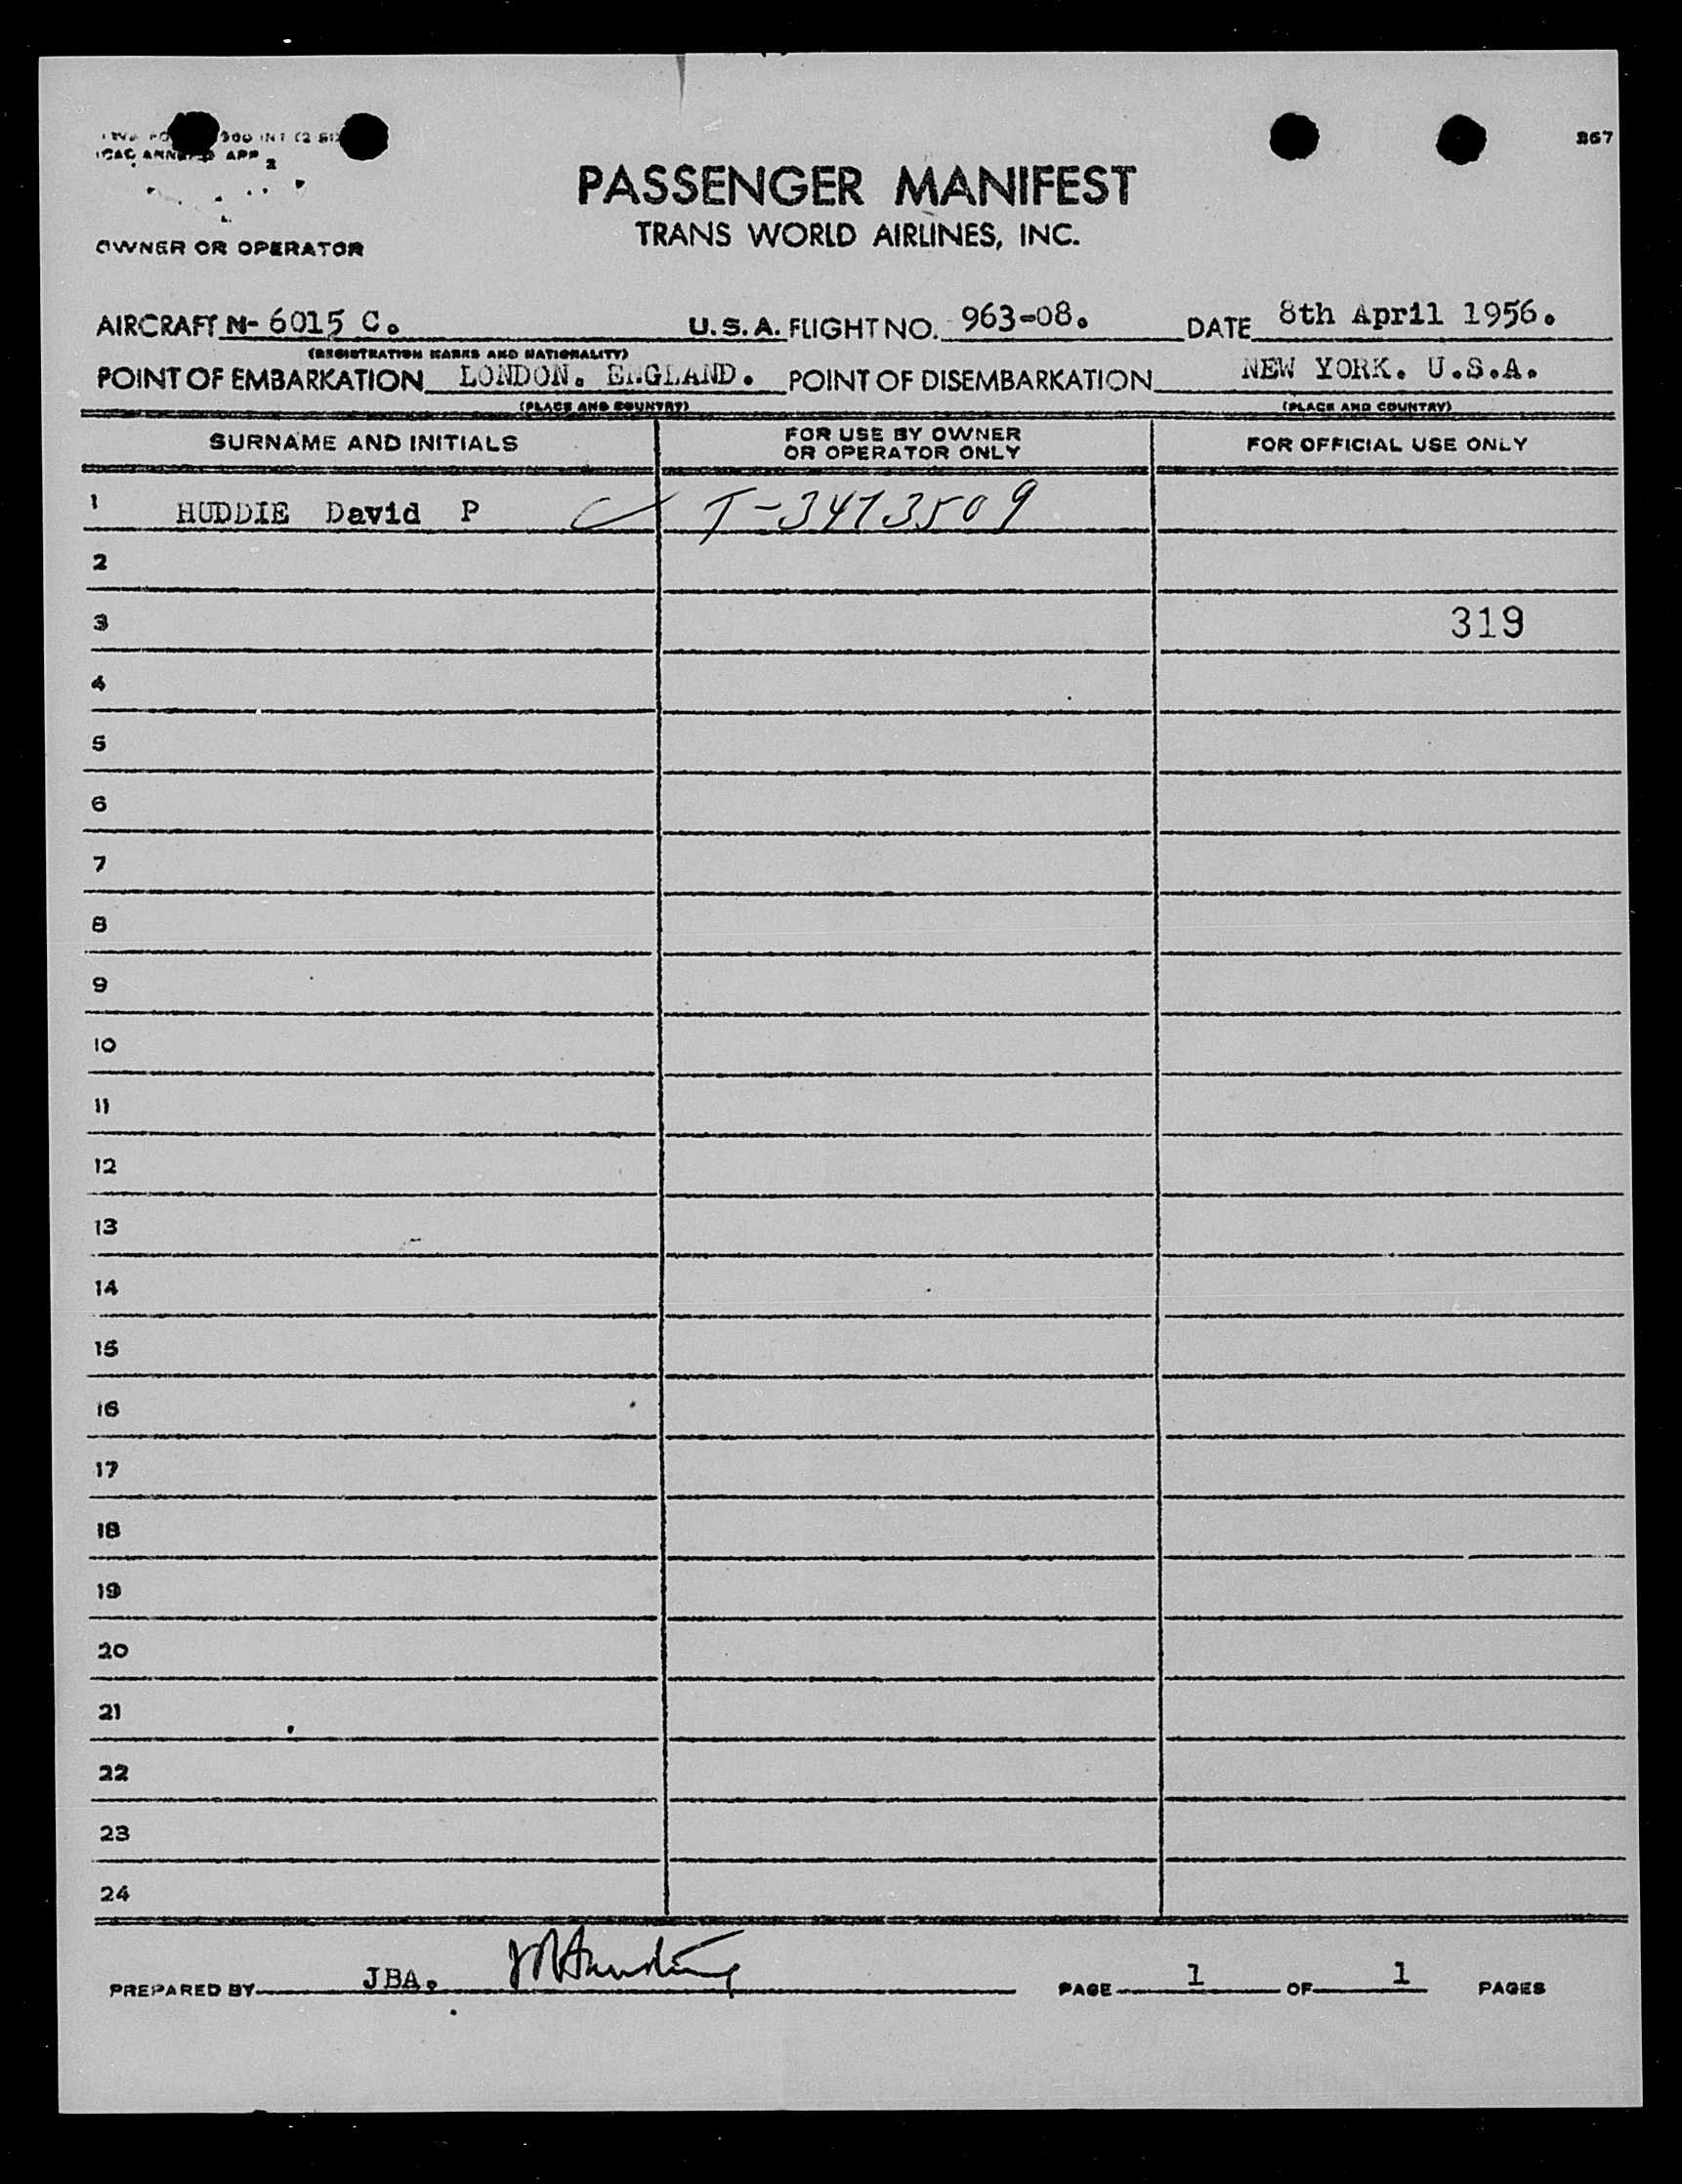 267
PASSENGER MANIFEST
TRANS WORLD AIRLINES, INC.
OWNER OR OPERATOR
AIRCRAFT N- 6015 C. U.S.A. FLIGHT NO. 963-08. DATE 8th April 1956.
(REGISTRATION MARKS AND NATIONALITY)
POINT OF EMBARKATION LONDON. ENGLAND. POINT OF DISEMBARKATION NEW YORK. U.S.A.
(PLACE AND COUNTRY) (PLACE AND COUNTRY)
SURNAME AND INITIALS FOR USE BY OWNER OR OPERATOR ONLY FOR OFFICIAL USE ONLY
1 HUDDIE David P T-3473509
2
3 319
4
5
6
7
8
9
10
11
12
13
14
15
16
17
18
19
20
21
22
23
24
PREPARED BY JBA. PAGE 1 OF 1 PAGES